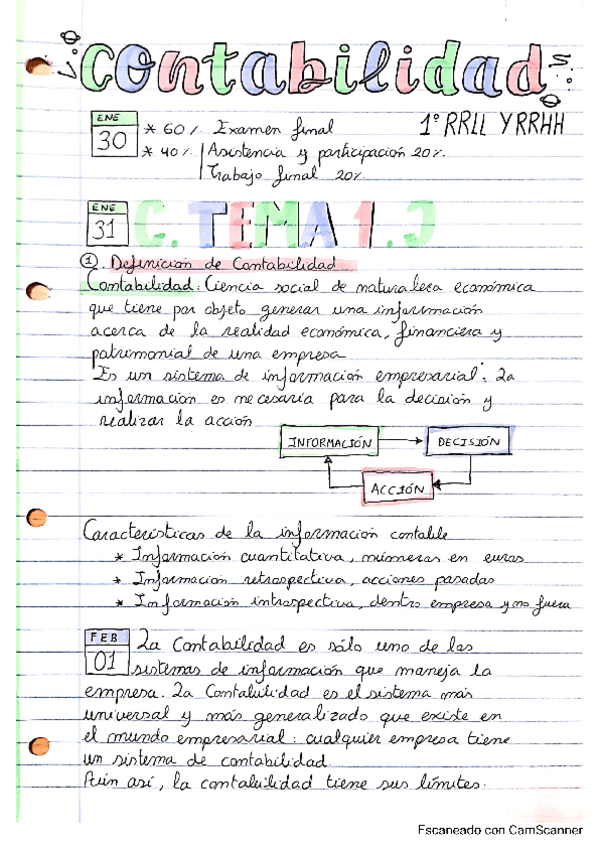 Contabilidad
ENE
30
* 60% Examen final
1º RRLL Y RRHH
* 40% Asistencia y participación 20%
Trabajo final 20%
ENE
31
C. TEMA 1. Ɔ
① Definición de Contabilidad
Contabilidad: Ciencia social de naturaleza económica
que tiene por objeto generar una información
acerca de la realidad económica, financiera y
patrimonial de una empresa
Es un sistema de información empresarial. La
información es necesaria para la decisión y
realizar la acción
INFORMACIÓN
DECISIÓN
ACCIÓN
Características de la información contable
* Información cuantitativa, números en euros
* Información retrospectiva, acciones pasadas
* Información introspectiva, dentro empresa y no fuera
FEB
01
La Contabilidad es sólo uno de los
sistemas de información que maneja la
empresa. La Contabilidad es el sistema más
universal y más generalizado que existe en
el mundo empresarial: cualquier empresa tiene
un sistema de contabilidad
Aún así, la contabilidad tiene sus límites.
Escaneado con CamScanner